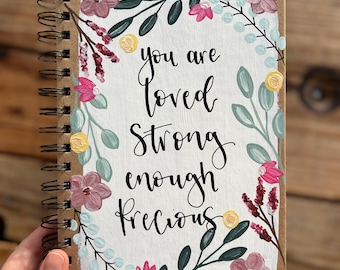 you are
loved
Strong
enough
Precious